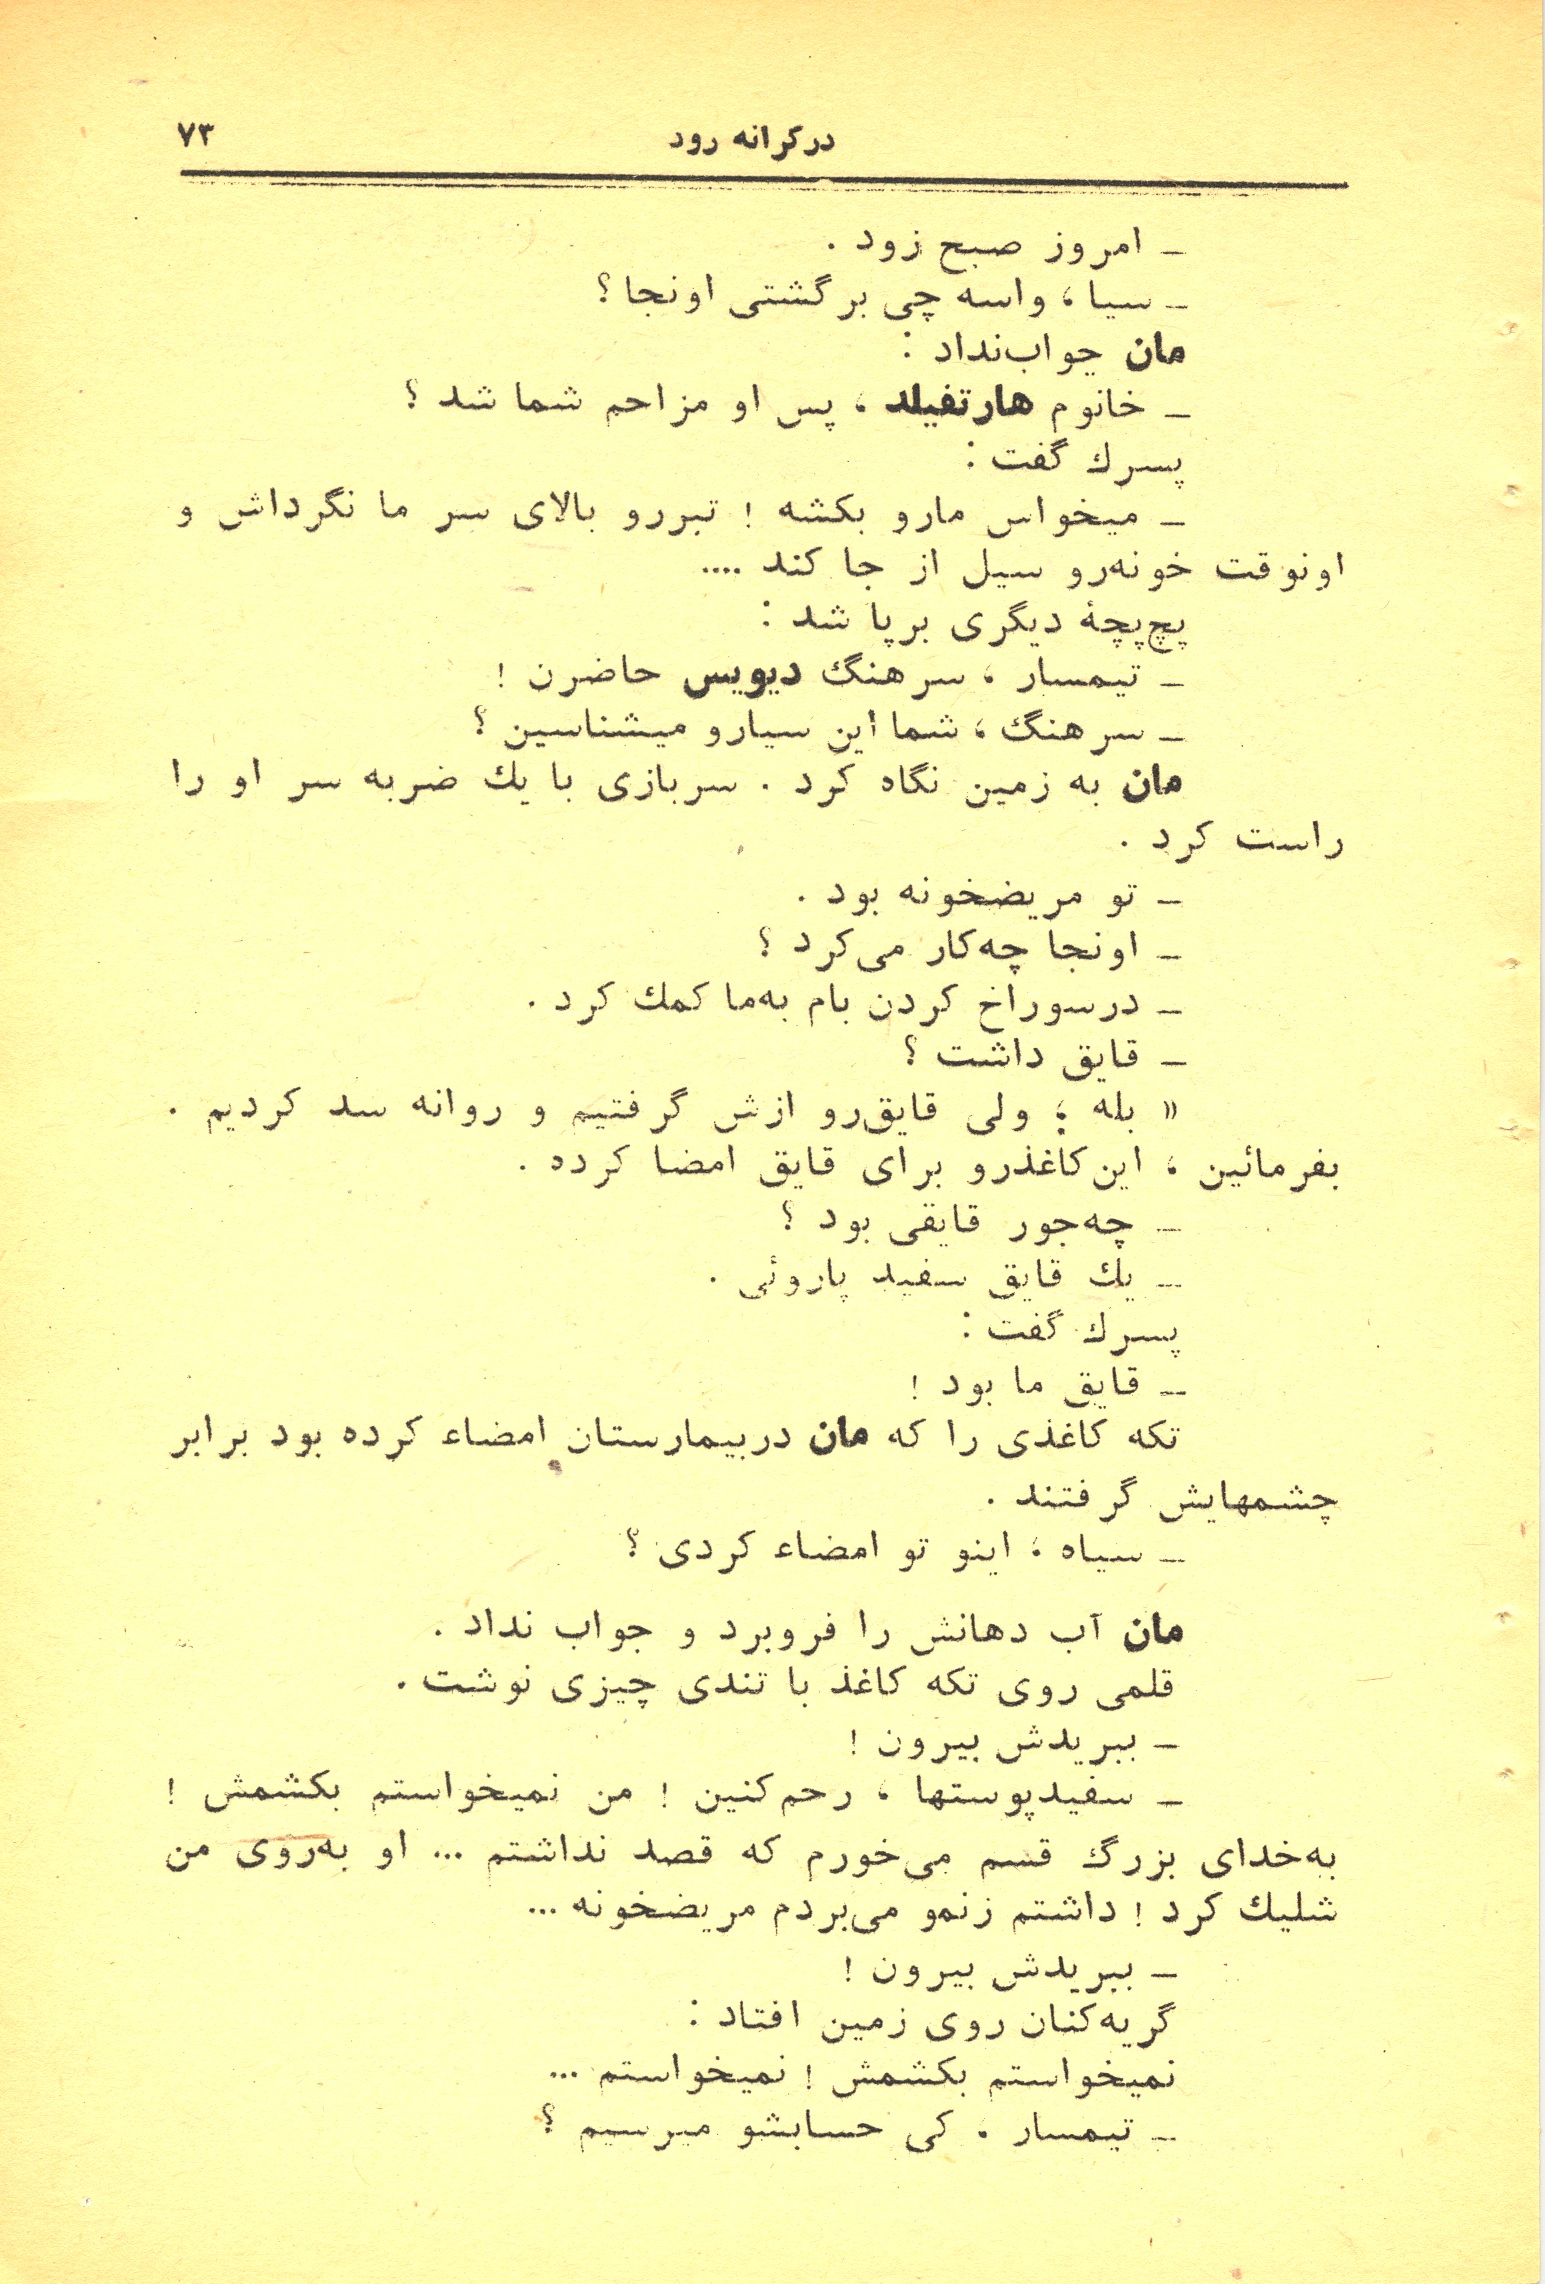 درکرانه رود
۷۳
ـ امروز صبح زود .
ـ سیا ، واسه چی برگشتی اونجا ؟
مان جواب‌نداد :
ـ خانوم هارتفیلد ، پس او مزاحم شما شد ؟
پسرك گفت :
ـ میخواس مارو بکشه ! تبررو بالای سر ما نگرداش و
اونوقت خونه‌رو سیل از جا کند ....
پچ‌پچهٔ دیگری برپا شد :
ـ تیمسار ، سرهنگ دیویس حاضرن !
ـ سرهنگ ، شما این سیارو میشناسین ؟
مان به زمین نگاه کرد . سربازی با یك ضربه سر او را
راست کرد .
ـ تو مریضخونه بود .
ـ اونجا چه‌کار می‌کرد ؟
ـ درسوراخ کردن بام به‌ما کمك کرد .
ـ قایق داشت ؟
« بله ؛ ولی قایق‌رو ازش گرفتیم و روانه سد کردیم .
بفرمائین ، این‌کاغذرو برای قایق امضا کرده .
ـ چه‌جور قایقی بود ؟
ـ یك قایق سفید پاروئی .
پسرك گفت :
ـ قایق ما بود !
تکه کاغذی را که مان دربیمارستان امضاء کرده بود برابر
چشمهایش گرفتند .
ـ سیاه ، اینو تو امضاء کردی ؟
مان آب دهانش را فروبرد و جواب نداد .
قلمی روی تکه کاغذ با تندی چیزی نوشت .
ـ ببریدش بیرون !
ـ سفیدپوستها ، رحم‌کنین ! من نمیخواستم بکشمش !
به‌خدای بزرگ قسم می‌خورم که قصد نداشتم ... او به‌روی من
شلیك کرد ! داشتم زنمو می‌بردم مریضخونه ...
ـ ببریدش بیرون !
گریه‌کنان روی زمین افتاد :
نمیخواستم بکشمش ! نمیخواستم ...
ـ تیمسار ، کی حسابشو میرسیم ؟